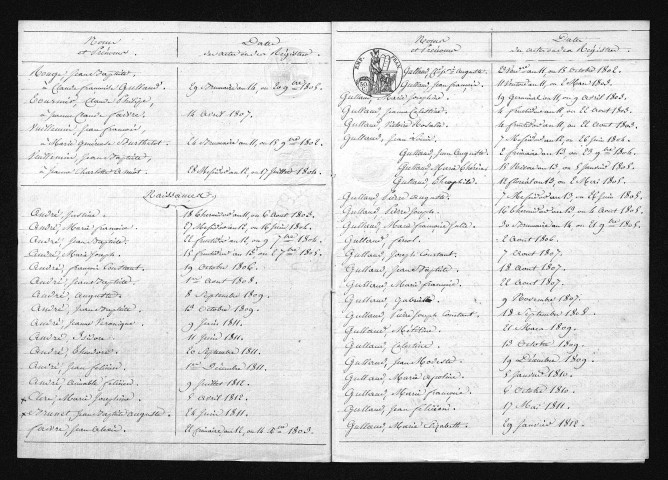 Noms et Prénoms
Date des actes ou des Registres
Rouge, Jean Baptiste
à Claude Françoise Guillaud. 29 Brumaire an 14, ou 20 9bre 1805.
Claude Philippe
à Jeanne Claude Favre. 14 Avril 1807.
Vuillemin, Jean François
à Marie Berthelet. 24 Brumaire an 11, ou 15 9bre 1802.
Vuillemin, Jean Baptiste
à Jeanne Charlotte André. 28 Messidor an 12, ou 17 Juillet 1804.
Naissances
André, Justine. 18 thermidor an 11, ou 6 Aout 1803.
André, Marie Françoise. 27 Messidor an 12, ou 16 Juin 1804.
André, Jean Baptiste. 22 fructidor an 12, ou 9 7bre 1804.
André, Marie Joseph. 15 fructidor an 13, ou 2 7bre 1805.
André, François Constant. 19 Octobre 1806.
André, Jean Baptiste. 1er Aout 1808.
André, Auguste. 8 Septembre 1809.
André, Jean Baptiste. 13 Octobre 1809.
André, Jeanne Véronique. 9 Juin 1811.
André, Isidore. 11 Juin 1811.
André, Théodore. 20 Septembre 1811.
André, Jean Félicien. 1er Décembre 1811.
André, Aimable Félicien. 9 Juillet 1812.
x Clerc, Marie Joséphine. 8 Avril 1812.
x Brunet, Jean Baptiste Auguste. 24 Juin 1812.
Favre, Jean Alexis. 22 frimaire an 12, ou 14 Xbre 1803.
Noms et Prénoms
Date des actes ou des Registres
Guillaud, Auguste. 23 an 11, ou 15 Octobre 1802.
Guillaud, Jean François. 11 Ventose an 11, ou 2 Mars 1803.
Guillaud, Marie Joséphine. 19 Germinal an 11, ou 9 Avril 1803.
Guillaud, Jeanne Célestine. 4 fructidor an 11, ou 22 Aout 1803.
Guillaud, Rosalie. 4 fructidor an 11, ou 22 Aout 1803.
Guillaud, Jean. 7 Messidor an 12, ou 26 Juin 1804.
Guillaud, Jean Auguste. 2 frimaire an 13, ou 23 9bre 1804.
Guillaud, Marie Thérèse. 15 Nivose an 13, ou 5 Janvier 1805.
Guillaud, Théophile. 12 floréal an 13, ou 2 Mai 1805.
Guillaud, Pierre Auguste. 7 Messidor an 13, ou 26 Juin 1805.
Guillaud, Pierre Joseph. 16 thermidor an 13, ou 4 Aout 1805.
Guillaud, Marie François Jules. 30 Brumaire an 14, ou 21 9bre 1805.
Guillaud, Féréol. 2 Aout 1806.
Guillaud, Joseph Constant. 7 Aout 1807.
Guillaud, Jean Baptiste. 18 Aout 1807.
Guillaud, Marie Françoise. 22 Aout 1807.
Guillaud, Gabrielle. 9 Novembre 1807.
Guillaud, Joseph Constant. 18 Septembre 1808.
Guillaud, 21 Mars 1809.
Guillaud, Célestine. 13 Octobre 1809.
Guillaud, Jean Modeste. 19 Décembre 1809.
Guillaud, Marie Apoline. 5 Janvier 1810.
Guillaud, Marie Françoise. 6 Octobre 1810.
Guillaud, Jean Félicien. 17 Mai 1811.
Guillaud, Marie Elizabeth. 29 Janvier 1812.